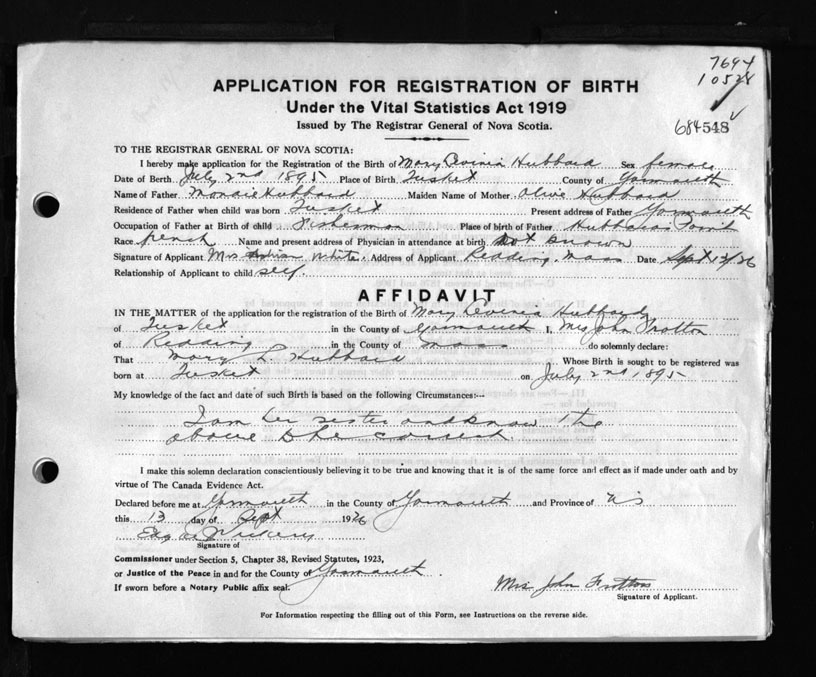 7694
10528
684548
APPLICATION FOR REGISTRATION OF BIRTH
Under the Vital Statistics Act 1919
Issued by The Registrar General of Nova Scotia.
TO THE REGISTRAR GENERAL OF NOVA SCOTIA:
I hereby make application for the Registration of the Birth of Mary Levinia Hubbard Sex female
Date of Birth July 2nd 1895 Place of Birth Tusket County of Yarmouth
Name of Father Hubbard Maiden Name of Mother Olive Hubbard
Residence of Father when child was born Tusket Present address of Father Yarmouth
Occupation of Father at Birth of child Fisherman Place of birth of Father Hubbards Point
Race french Name and present address of Physician in attendance at birth Not known
Signature of Applicant Mrs White. Address of Applicant Redding, Mass Date Sept 13/26
Relationship of Applicant to child self.
AFFIDAVIT
IN THE MATTER of the application for the registration of the Birth of Mary Levinia Hubbard
of Tusket in the County of Yarmouth I, Mrs John Frotton
of Redding in the County of Mass do solemnly declare:
That Mary L. Hubbard Whose Birth is sought to be registered was
born at Tusket on July 2nd 1895
My knowledge of the fact and date of such Birth is based on the following Circumstances:—
I am her sister and know the
above to be correct.
I make this solemn declaration conscientiously believing it to be true and knowing that it is of the same force and effect as if made under oath and by
virtue of The Canada Evidence Act.
Declared before me at Yarmouth in the County of Yarmouth and Province of NS
this 13 day of Sept 1926
Signature of
Commissioner under Section 5, Chapter 38, Revised Statutes, 1923,
or Justice of the Peace in and for the County of Yarmouth.
If sworn before a Notary Public affix seal.
Mrs John Frotton
Signature of Applicant.
For Information respecting the filling out of this Form, see Instructions on the reverse side.